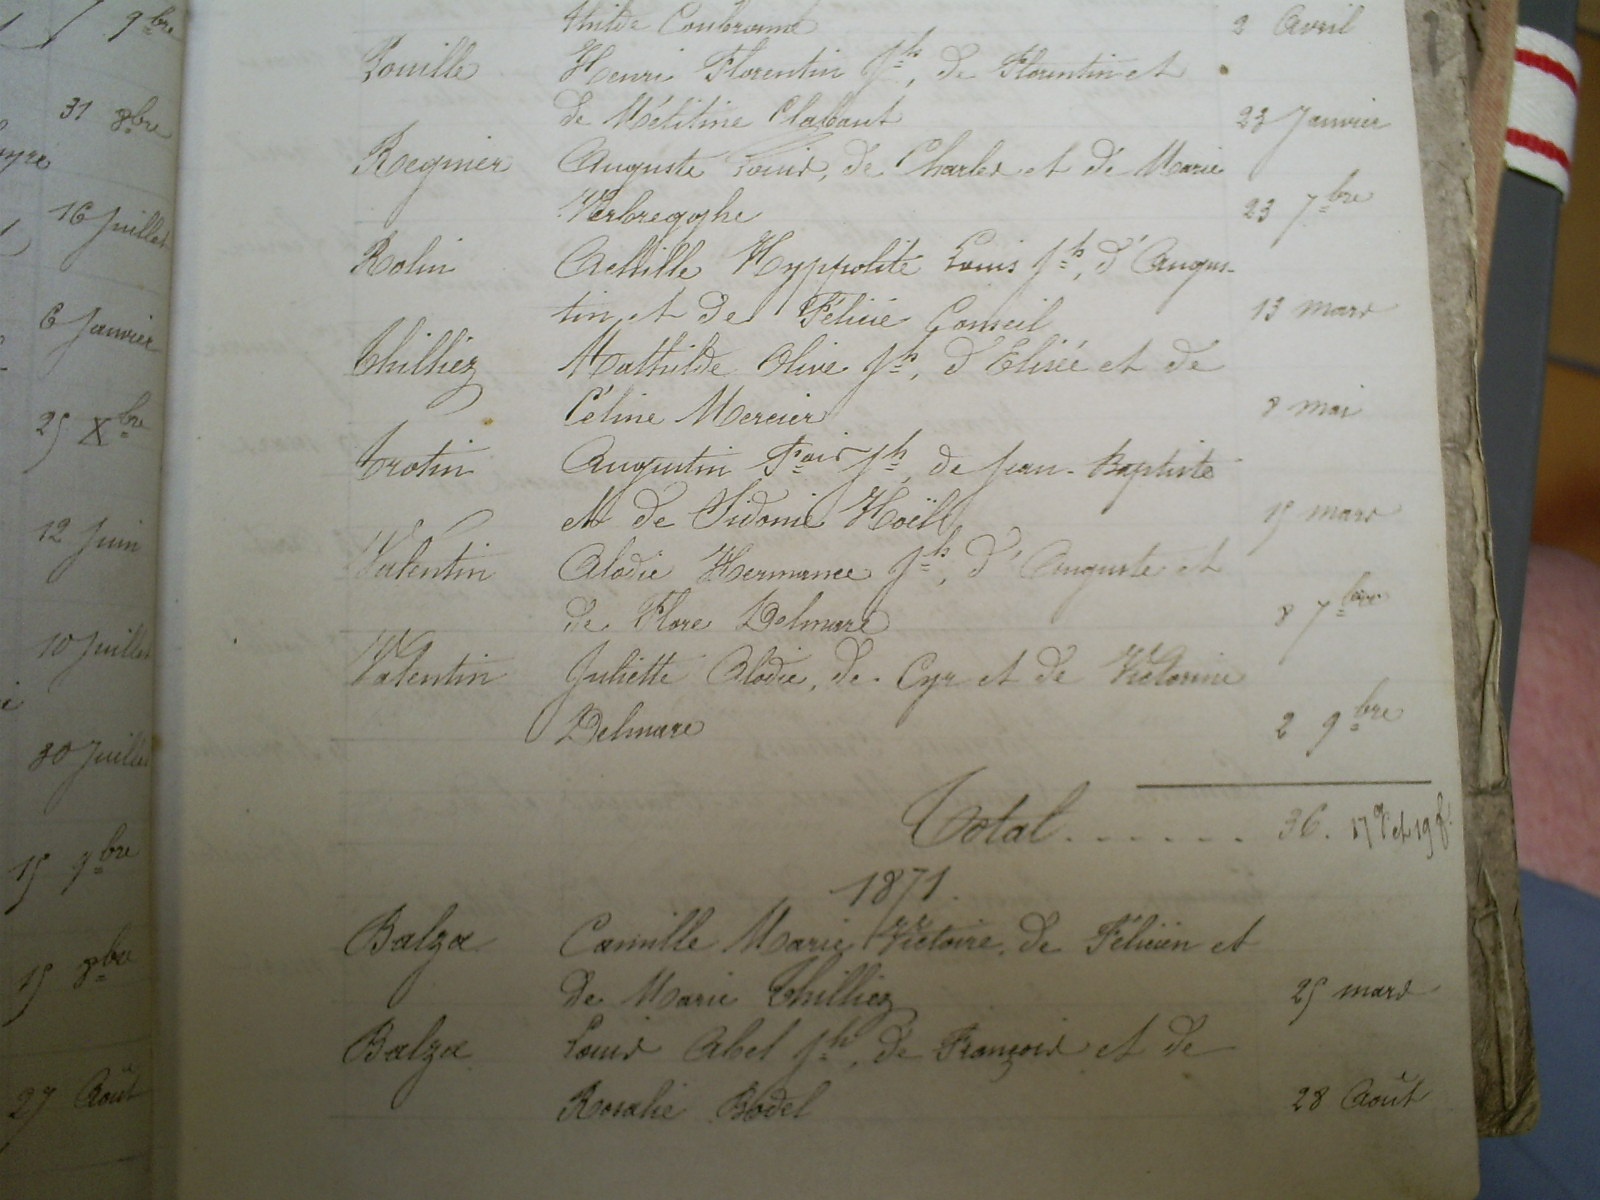 9bre
31 8bre
16 Juillet
6 Janvier
25 Xbre
12 Juin
10 Juillet
30 Juillet
15 9bre
15 8bre
27 Août
thilde 2 Avril
Rouille Henri Florentin Jh, de Florentin et
de Mélitine Clabaut 23 Janvier
Regnier Auguste Louis, de Charles et de Marie
Verbregghe 23 7bre
Rolin Achille Hyppolite Louis Jh, d'Augus-
tin et de Félicie Conseil 13 mars
Thilliez Mathilde Olive Jh, d'Elisée et de
Céline Mercier 8 mai
Trotin Augustin Fçois Jh, de Jean-Baptiste
et de Sidonie Hoël 15 mars
Valentin Alodie Hermance Jh, d'Auguste et
de Flore Delmare 8 7bre
Valentin Juliette Alodie, de Cyr et de Victorine
Delmare 2 9bre
Total...... 36. 17 g et 19 f.
1871.
Balza Camille Marie Victoire, de Félicien et
de Marie Thilliez 25 mars
Balza Louis Abel Jh, de François et de
Rosalie Bodel 28 Août